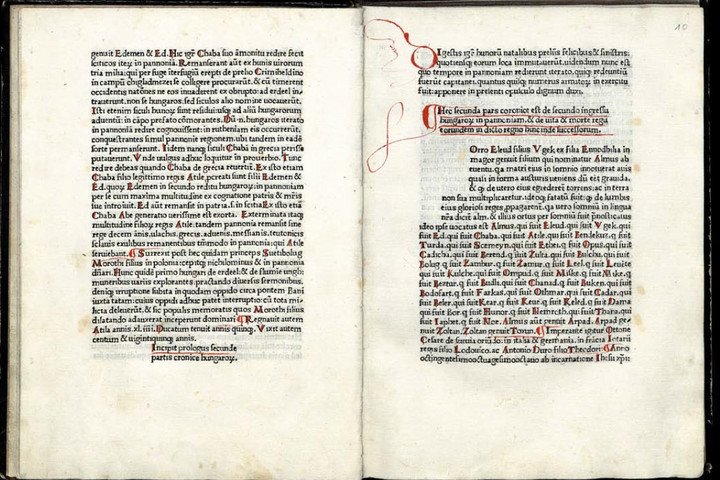 genuit Edemen & Ed. Hic igit̃ Chaba suo ãmonitu redire fecit
sciticos itex̨ in pannoniã. Remanserant aũt ex hunis uirorum
tria milia: qui per fuge iterfugiũ erepti de prelio Crimheldino
in campũ chigladmezei se colligere procurarũt. & cũ timerent
occidentis natões ne eos inuaderent ex obrupto: ad erdeel in-
trauerunt. non se hungaros: sed siculos alio nomine uocauerũt.
Isti etenim siculi hunox̨ sunt residui: usq̃ ad aliũ hungarorum
aduentũ: in cãpo prefato cõmorantes. Dũ .n. hungaros iterato
in pannoniã redire cognouissent: in rutheniam eis occurrerũt.
conquestrantes simul pannonie regionem. ubi tandem in eadẽ
sorte permanserunt. Iidem nanq̃ siculi Chabã in grecia perisse
putauerunt. Vnde uulgus adhuc loquitur in prouerbio. Tunc
redire debeas quando Chaba de grecia reuertet̃. Ex isto etiam
Chaba filio legittimo regis Atile. procreati sunt filii Edemen &
Ed. quox̨ Edemen in secundo reditu hungarox̨ in pannoniam
per se cum maxima multitudine ex cognatione patris & m̃ris
sue introiuit. Ed aũt remansit in patria .s. in scitia Ex isto etiã
Chaba Abe generatio uerissime est exorta. Exterminata itaq̃
multitudine filiox̨ regis Atile. tandem pannonia remansit sine
rege decem ãnis. ulachis. grecis. aduenis. messianis. teutonicis
sclauis exulibus remanentibus tm̃modo in pannonia: qui Atile
seruiebant. ¶ Surrexit post hec quidam princeps Suetibolug
Morothi filius in polonia
dñari. Hunc quidẽ primo hungari de erdeel: & de flumine ungh:
muneribus uariis explorantes. predictam diuersis sermonibus.
deniq̃ irruptione subita in quodam oppido circa pontem Bani
iuxta tatam: cuius oppidi adhuc patet interruptio: cũ tota mi-
licia deleuerũt. & sic populis memoratus quos Morothi filius
disfatando adauxerat inceperunt dominari ¶ Regnauit autem
Atila annis. xl. iiii. Ducatum tenuit annis quinq̃. Vixit autem
centum & uigintiquinq̃ annis.
Incipit prologus secunde
partis cronice hungarox̨.
10
Igestis igit̃ hunorũ natalibus preliis felicibus & sinistris:
quotiensq̃ eorum loca immutauerũt. uidendum nunc est
quo tempore in pannoniam redierunt iterato. quiq̃ redeuntiũ
fuerũt capitanei. quantusq̃ quilibet numerus armatorum in exercitu
fuit: apponere in presenti opusculo dignum duxi.
¶ Hec secunda pars coronice est de secundo ingressu
hungarox̨ in pannoniam. & de uita & morte regũ
eorumdem in dicto regno hinc inde successorum.
Orro Eleud filius Vgek. ex filia Ennodbilia in
magor genuit filium qui nominatur Almus ab
euentu. qa matri eius in somnio innotuerat auis
quasi in forma austuris ueniens dũ eẽt grauida.
& q̃ de utero eius egrederet̃ torrens. ac in terra
non sua multiplicaretur. ideoq̃ factũ fuit: q̃ de lumbis
eius gloriosi reges propagarent̃. qa uero somnium in lingua
nr̃a dicit̃ alm. & illius ortus per somniũ fuit p̃nosticatus
ideo ipse uocatus est Almus. qui fuit Eleud. qui fuit Vgek. qui
fuit Ed. qui fuit Chaba. qui fuit Atile. qui fuit Bendekuz. q̃ fuit
Turda. qui fuit Scemeyn. qui fuit Ethei. q̃ fuit Opus. qui fuit
Cadicha. qui fuit Berend. q̃ fuit Zulta. qui fuit Bulchu. qui fuit
Bolug. q̃ fuit Zambur. q̃ fuit Zamur. q̃ fuit Leel. q̃ fuit Leuite
qui fuit Kulche. qui fuit Ompud. q̃ fuit Miske. q̃ fuit Mike. q̃
fuit Beztur. q̃ fuit Budli. qui fuit Chanad. q̃ fuit Buken. qui fuit
Bodofart. q̃ fuit Farkas. qui fuit Othmar. qui fuit Cadar. qui
fuit Beler. qui fuit Kear. q̃ fuit Keue. q̃ fuit Keled. q̃ fuit Dama
qui fuit Bor. q̃ fuit Hunor. q̃ fuit Nemroth. qui fuit Thana. qui
fuit Iaphet. q̃ fuit Noe. Almus aũt genuit Arpad. Arpad ge-
nuit Zoltan. Zoltan genuit Toxun. ¶ Imperante igitur Ottone
Cesare de sueuia oriũdo. in italia & germania. in frãcia lotarii
regis filio Lodouico. ac Antonio Duro filio Theodori ¶ Anno
octingentesimooctuagesimooctauo ab incarnatione Ihesu xp̃i: